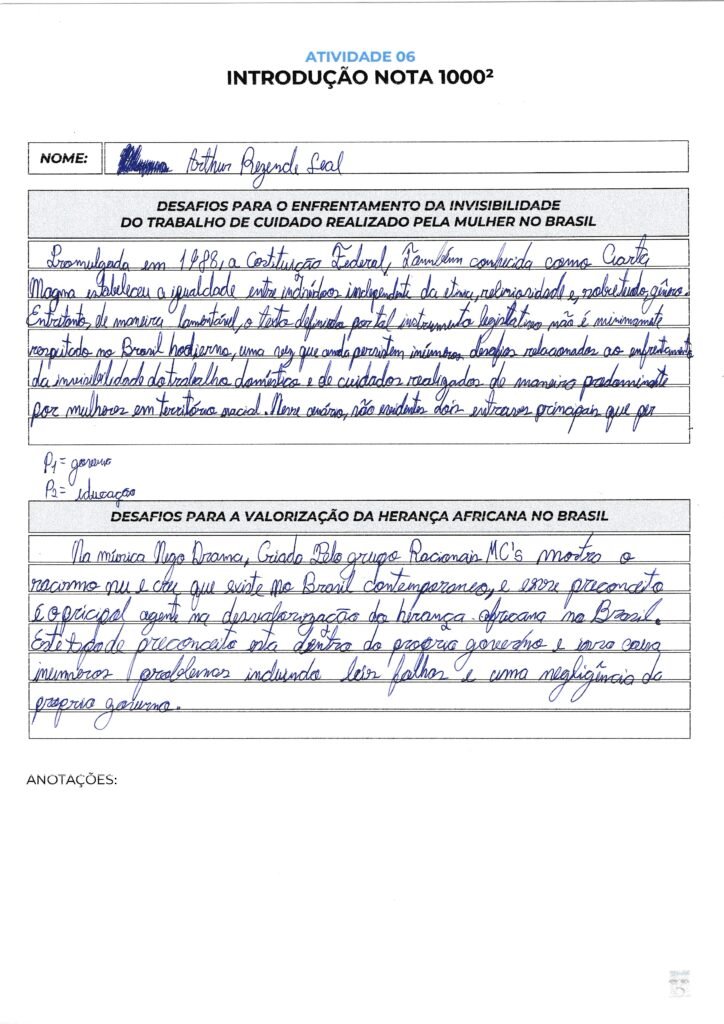 ATIVIDADE 06
INTRODUÇÃO NOTA 1000²
NOME: Arthur Rezende Leal
DESAFIOS PARA O ENFRENTAMENTO DA INVISIBILIDADE
DO TRABALHO DE CUIDADO REALIZADO PELA MULHER NO BRASIL
Promulgada em 1988, a Costituição Federal, Também conhecida como Carta
Magna estabeleceu a igualdade entre indivíduos independente da etnia, religiosidade e, sobretudo, gênero.
Entretanto, de maneira lamentável, o texto definido por tal instrumento legislativo não é minimamente
respeitado no Brasil hodierno, uma vez que ainda persistem inúmeros desafios relacionados ao enfrentamento
da invisibilidade do trabalho doméstico e de cuidados realizados de maneira predominate
por mulheres em território nacial. Nesse cenário, são evidentes dois entraves principais que per
P1 = governo
P2 = educação
DESAFIOS PARA A VALORIZAÇÃO DA HERANÇA AFRICANA NO BRASIL
Na música Nego Drama, Criado Pelo grupo Racionais MC's mostra o
racismo nu e cru que existe no Brasil contemporaneo, e esse preconceito
é o pricipal agente na desvalorização da herança africana no Brasil.
Este tipo de preconceito esta dentro do proprio governo e isso causa
inúmeros problemas incluindo leis falhas e uma negligência do
proprio governo.
ANOTAÇÕES: